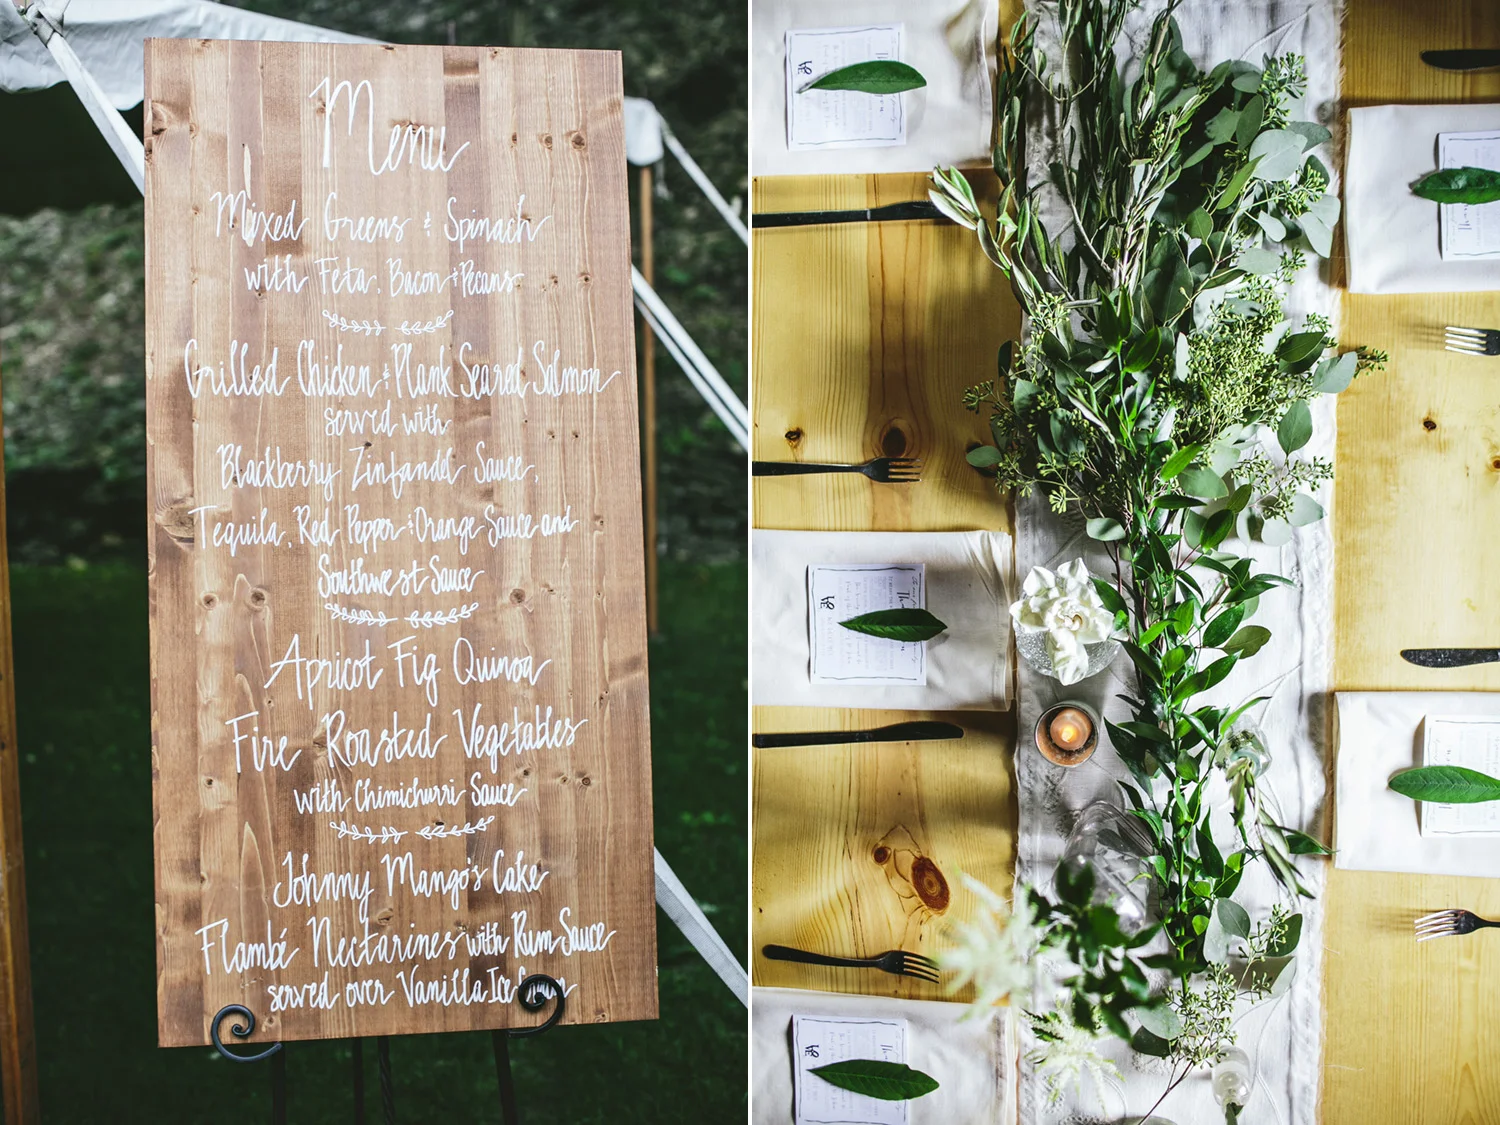 Menu
Mixed Greens & Spinach
with Feta, Bacon & Pecans
Grilled Chicken & Plank Seared Salmon
served with
Blackberry Zinfandel Sauce,
Tequila, Red Pepper & Orange Sauce and
Southwest Sauce
Apricot Fig Quinoa
Fire Roasted Vegetables
with Chimichurri Sauce
Johnny Mango's Cake
Flambé Nectarines with Rum Sauce
served over Vanilla Ice